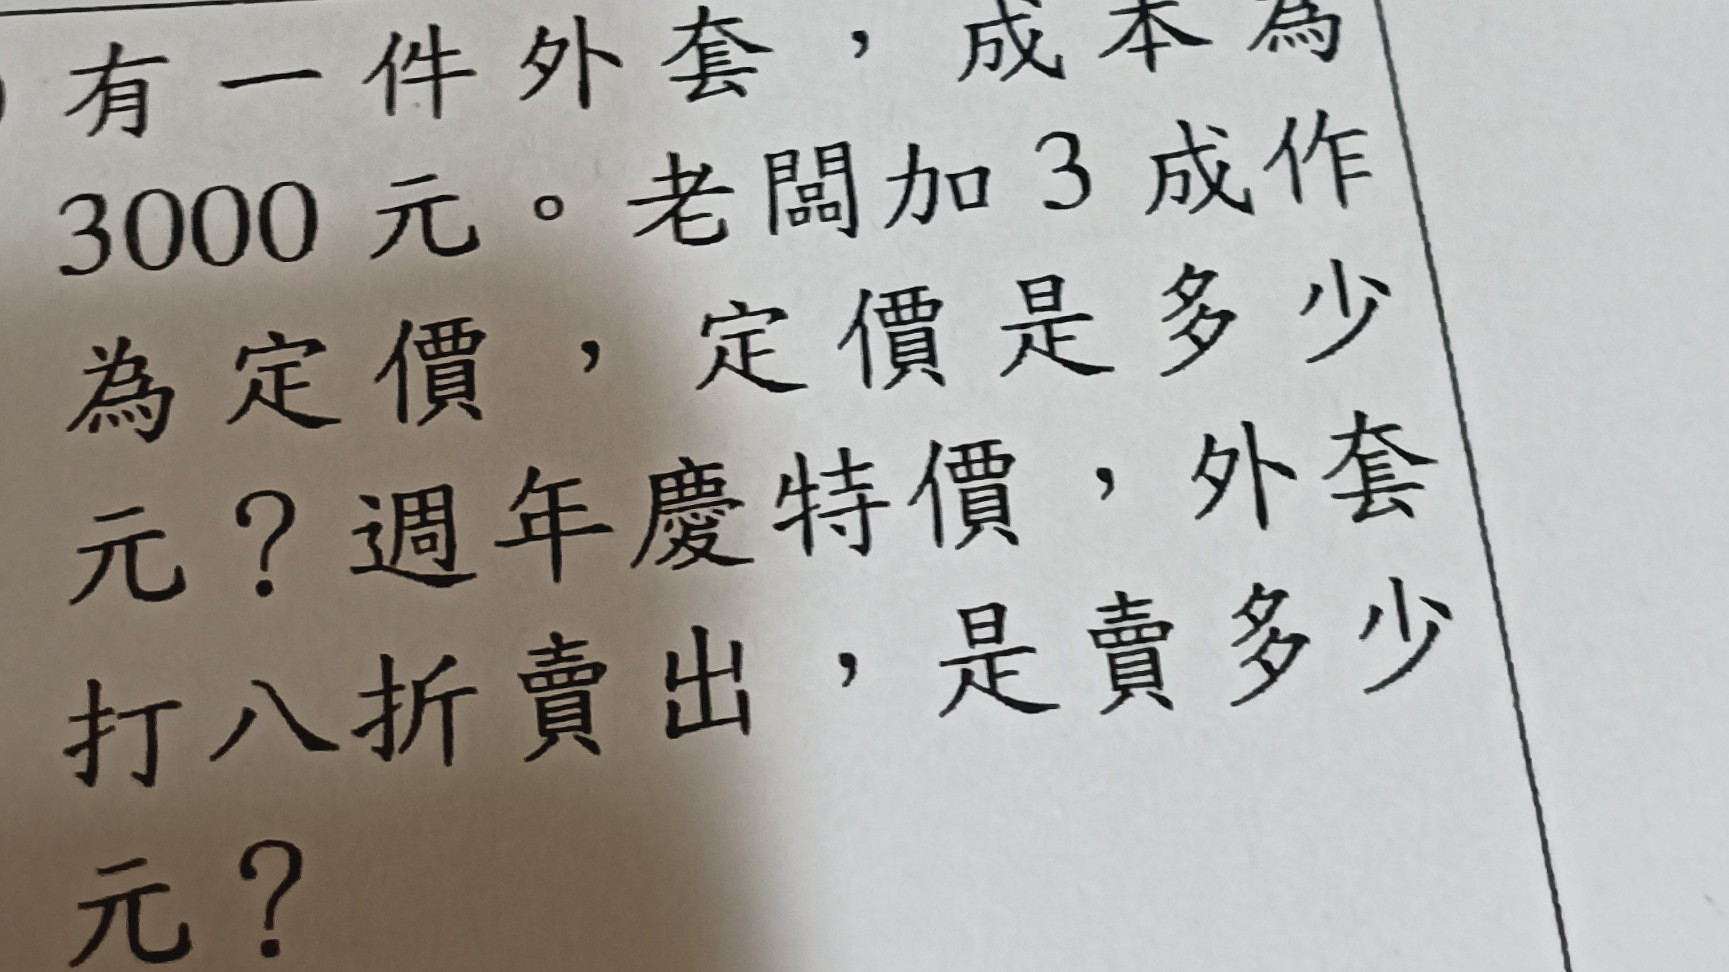 有一件外套，成本為
3000元。老闆加3成作
為定價，定價是多少
元？週年慶特價，外套
打八折賣出，是賣多少
元？